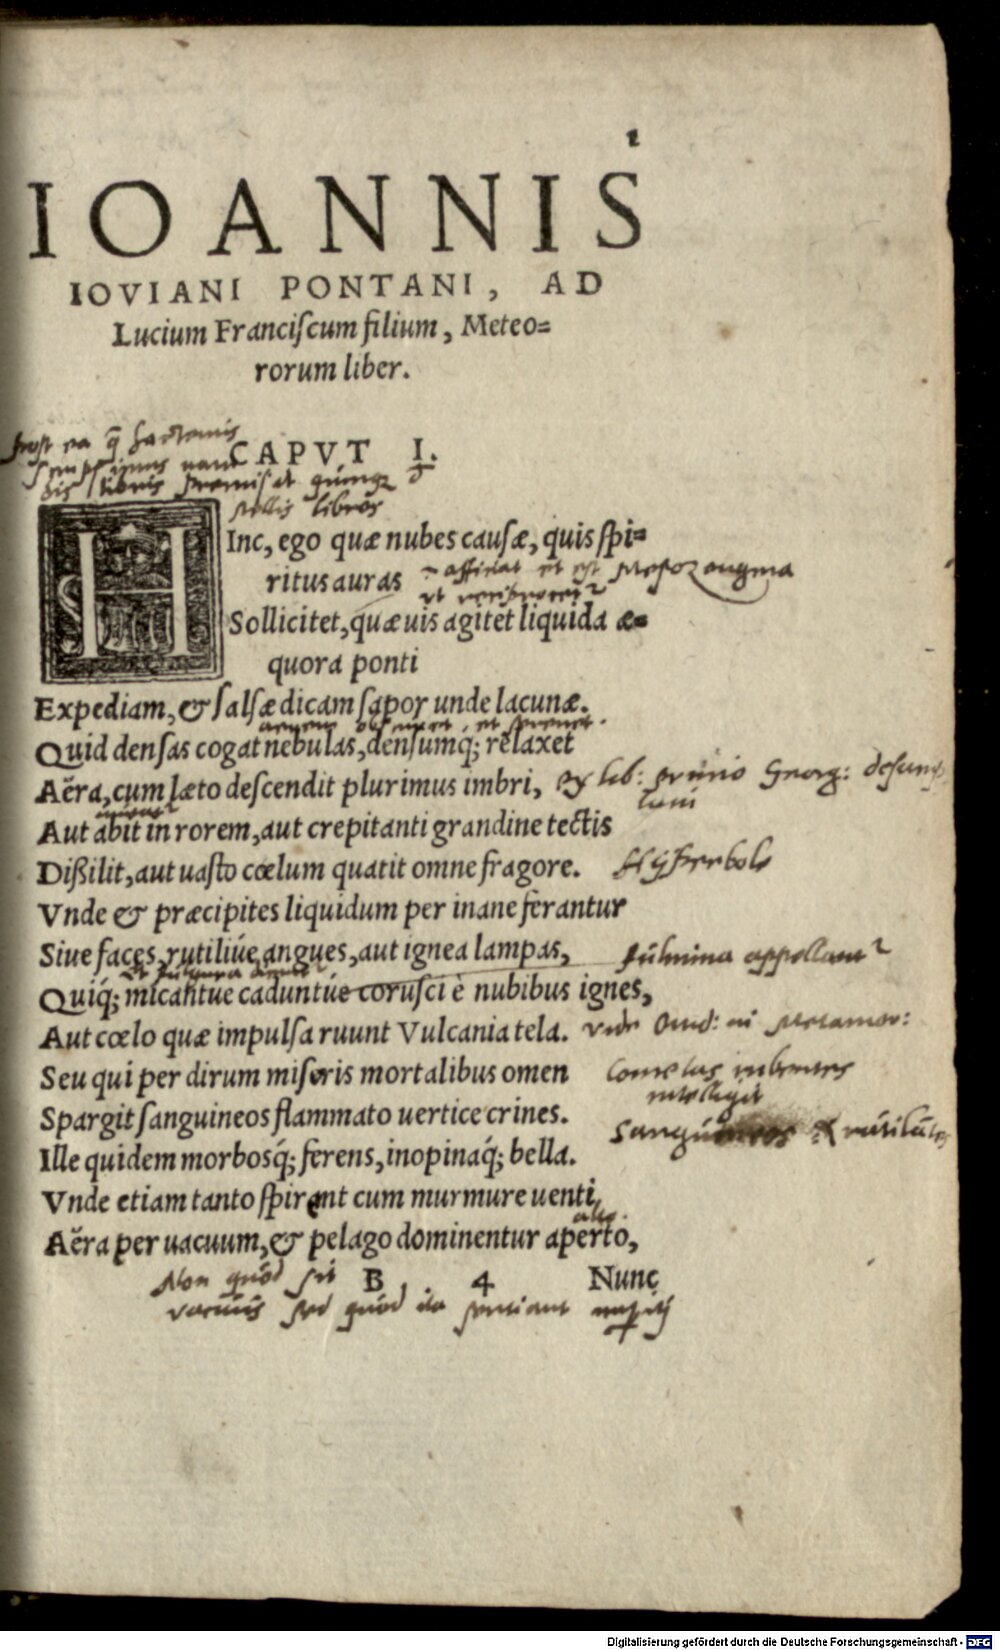 IOANNIS
IOVIANI PONTANI, AD
Lucium Franciſcum filium, Meteo=
rorum liber.
CAPVT I.
libros
HInc, ego quæ nubes cauſæ, quis ſpi=
ritus auras
Sollicitet, quæ uis agitet liquida æ=
quora ponti
Expediam, & ſalſæ dicam ſapor unde lacunæ.
Quid denſas cogat nebulas, denſumq́; relaxet
Aëra, cum læto deſcendit plurimus imbri, ex lib: primo Georg:
Aut abit in rorem, aut crepitanti grandine tectis
Diſsilit, aut uaſto cœlum quatit omne fragore. Hyperbole
Vnde & præcipites liquidum per inane ferantur
Siue faces, rutiliúe angues, aut ignea lampas, fulmina appellant
Quiq́; micantue caduntúe coruſci è nubibus ignes,
Aut cœlo quæ impulſa ruunt Vulcania tela. vide Ouid: in Metamor:
Seu qui per dirum miſeris mortalibus omen Cometas
intelligit
Spargit ſanguineos flammato uertice crines. Sanguineos
Ille quidem morbosq́; ferens, inopinaq́; bella.
Vnde etiam tanto ſpirent cum murmure uenti,
alto.
Aëra per uacuum, & pelago dominentur aperto,
Non quòd sit B 4 Nunc
vacuus sed quòd ita